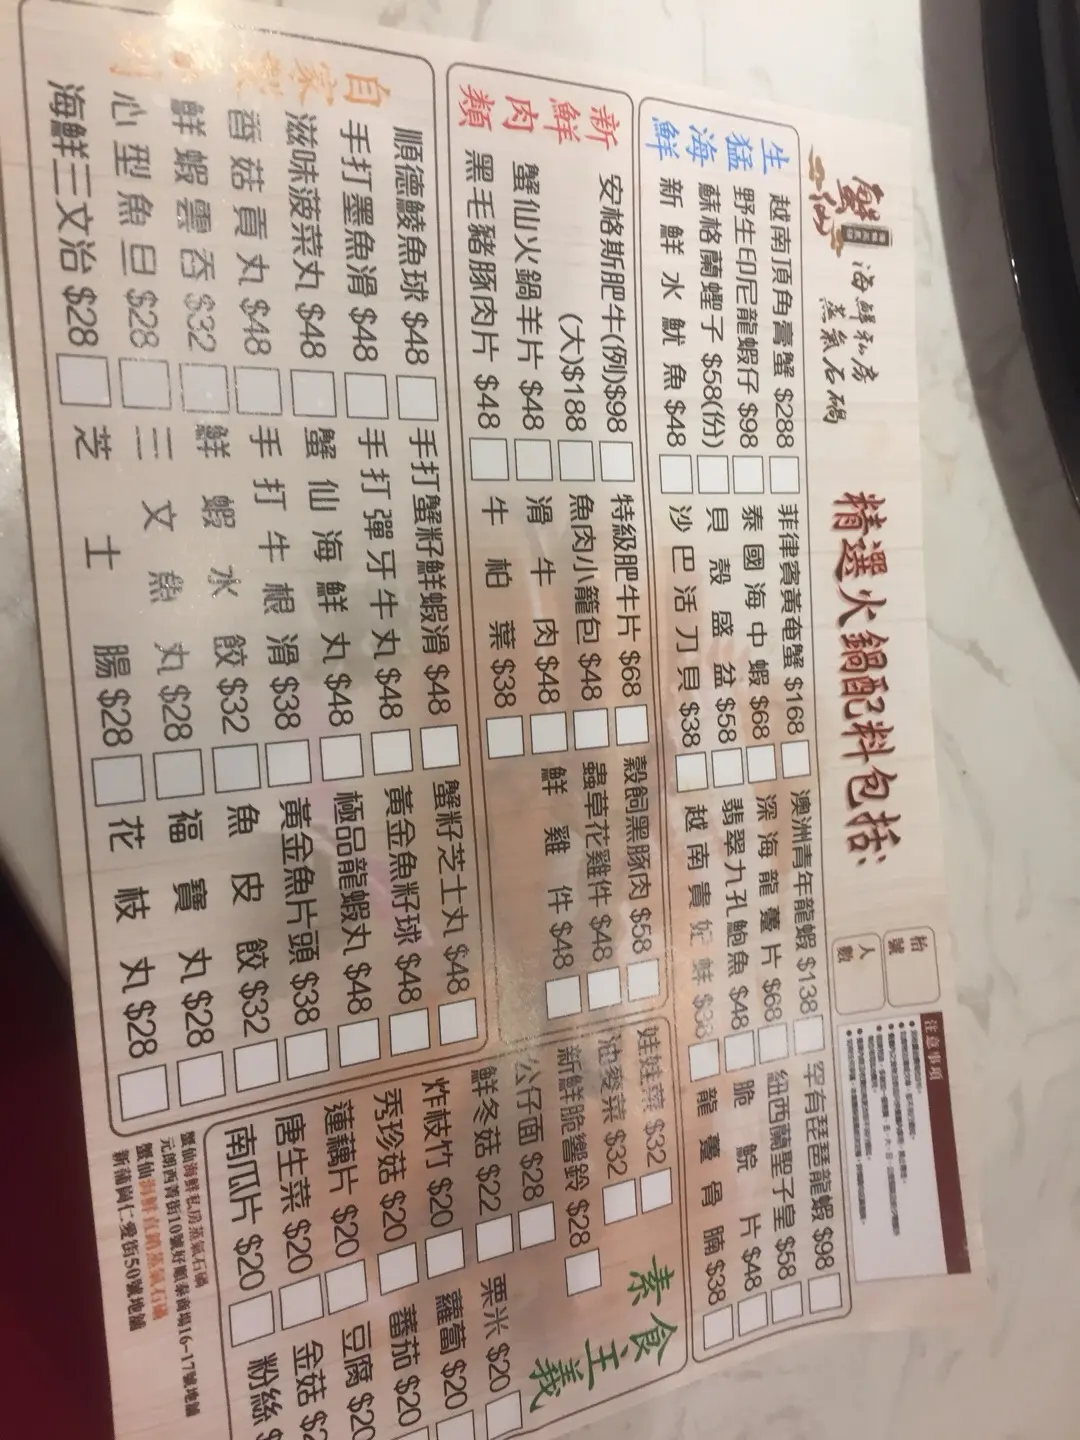 蟹仙
海鮮私房
蒸氣石鍋
精選火鍋配料包括:
枱號
人數
注意事項
生猛海鮮
越南頂角膏蟹 $288 菲律賓黃奄蟹 $168 澳洲青年龍蝦 $138 罕有琵琶龍蝦 $98
野生印尼龍蝦仔 $98 泰國海中蝦 $68 深海龍躉片 $68 紐西蘭聖子皇 $58
蘇格蘭蟶子 $58(份) 貝殼盛盆 $58 翡翠九孔鮑魚 $48 脆鯇片 $48
新鮮水魷魚 $48 沙巴活刀貝 $38 越南貴妃蚌 $38 龍躉骨腩 $38
新鮮肉類
安格斯肥牛(例)$98 特級肥牛片 $68 穀飼黑豚肉 $58
(大)$188 魚肉小籠包 $48 蟲草花雞件 $48
蟹仙火鍋羊片 $48 滑牛肉 $48 鮮雞件 $48
黑毛豬豚肉片 $48 牛柏葉 $38
自家
順德鯪魚球 $48 手打蟹籽鮮蝦滑 $48 蟹籽芝士丸 $48
手打墨魚滑 $48 手打彈牙牛丸 $48 黃金魚籽球 $48
滋味菠菜丸 $48 蟹仙海鮮丸 $48 極品龍蝦丸 $48
香菇貢丸 $48 手打牛根滑 $38 黃金魚片頭 $38
鮮蝦雲吞 $32 鮮蝦水餃 $32 魚皮餃 $32
心型魚旦 $28 三文魚丸 $28 福寶丸 $28
海鮮三文治 $28 芝士腸 $28 花枝丸 $28
素食主義
娃娃菜 $32
油麥菜 $32
新鮮脆響鈴 $28
公仔面 $28
鮮冬菇 $22 粟米 $20
炸枝竹 $20 蘿蔔 $20
秀珍菇 $20 蕃茄 $20
蓮藕片 $20 豆腐 $20
唐生菜 $20 金菇 $2
南瓜片 $20 粉絲 $
蟹仙海鮮私房蒸氣石鍋
元朗西菁街10號好順泰商場16-17號地舖
蟹仙海鮮直銷蒸氣石鍋
新蒲崗仁愛街50號地舖